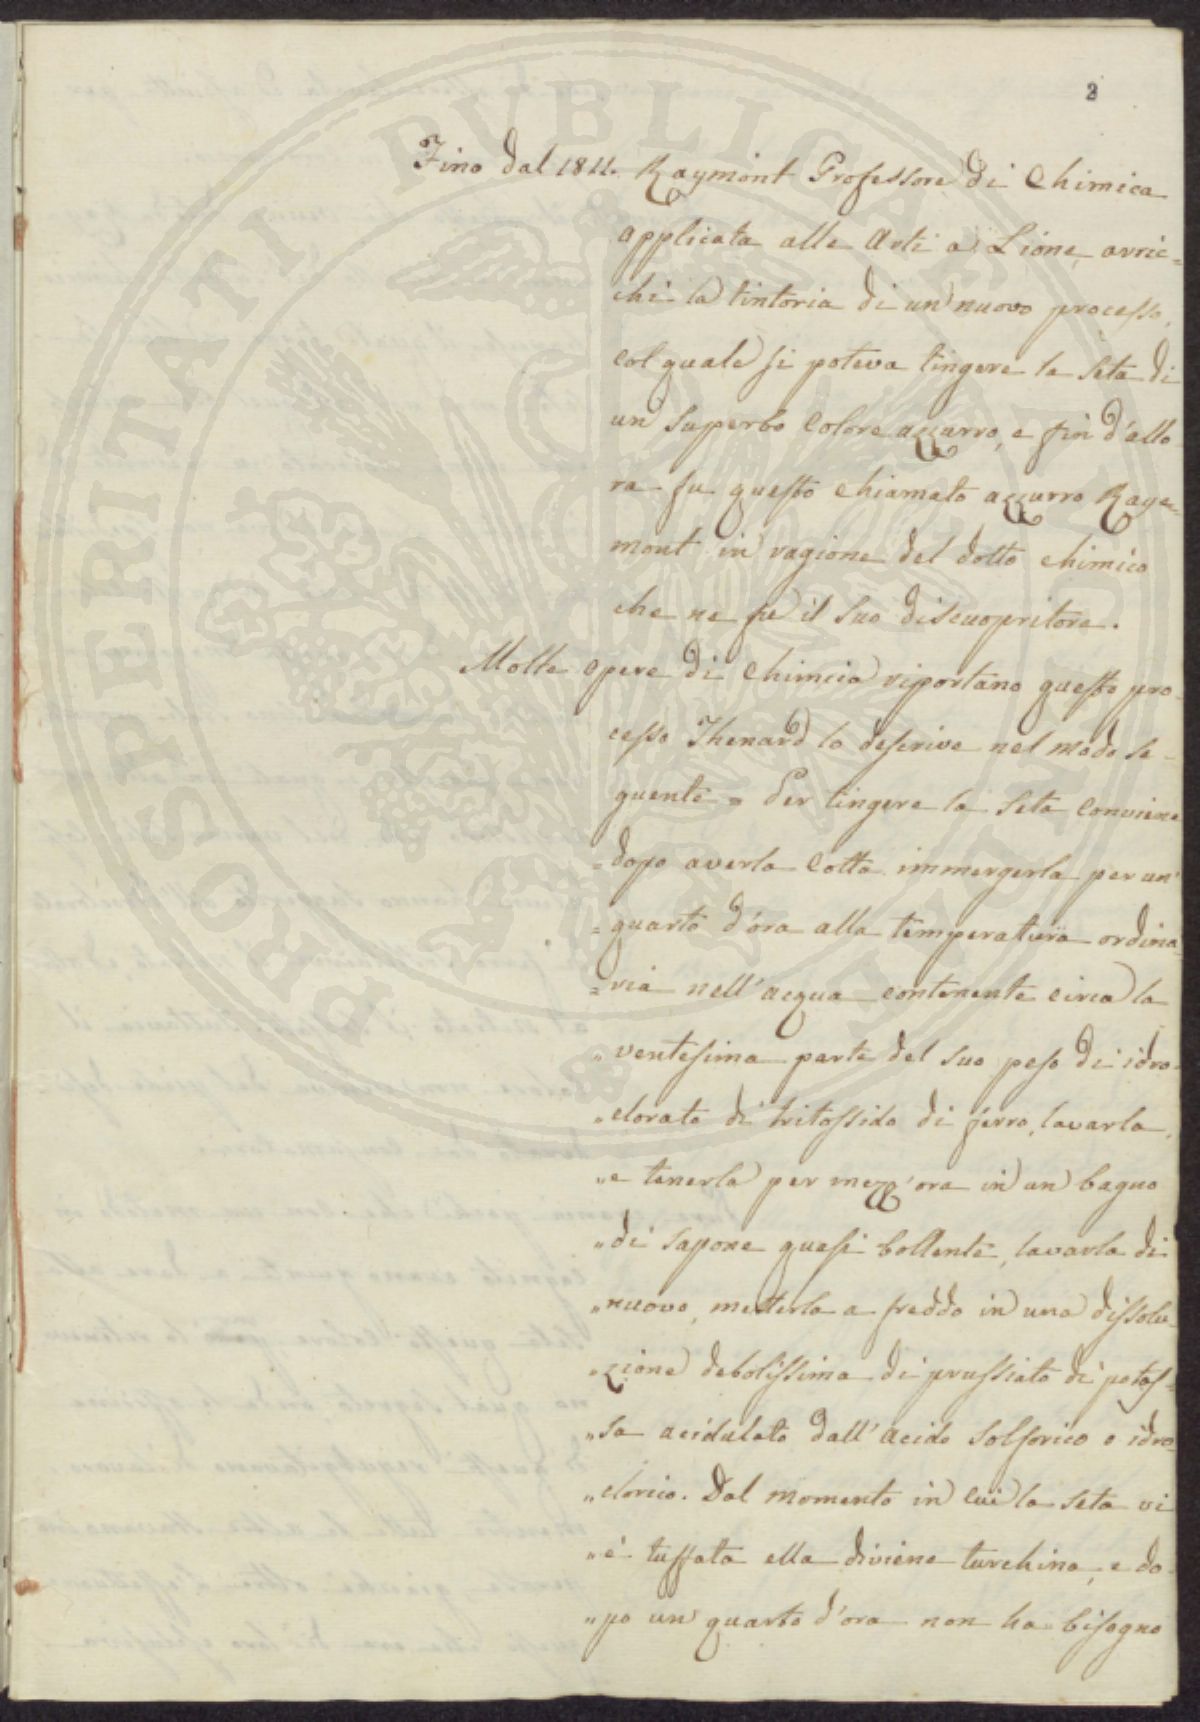 2
Fino dal 1811. Raymont Professore di Chimica
applicata alle Arti a Lione, arric=
chì la tintoria di un nuovo processo,
col quale si poteva tingere la seta di
un superbo colore azzurro, e fin d'allo
ra fu questo chiamato azzurro Ray=
mont in ragione del dotto chimico
che ne fu il suo discuopritore.
Molte opere di Chimica riportano questo pro
cesso Thenard lo descrive nel modo se-
guente = Per tingere la seta conviene
=dopo averla cotta immergerla per un'
=quarto d'ora alla temperatura ordina
=ria nell'acqua contenente circa la
"ventesima parte del suo peso di idro=
"clorato di tritossido di ferro, lavarla,
"e tenerla per mezz'ora in un bagno
"di sapone quasi bollente, lavarla di
"nuovo, metterla a freddo in una dissolu
"zione debolissima di prussiato di potas=
"sa acidulato dall'acido solforico o idro=
"clorico. Dal momento in cui la seta vi
"è tuffata ella diviene turchina, e do=
"po un quarto d'ora non ha bisogno
PROSPERITATI PUBLICAE AUGENDAE